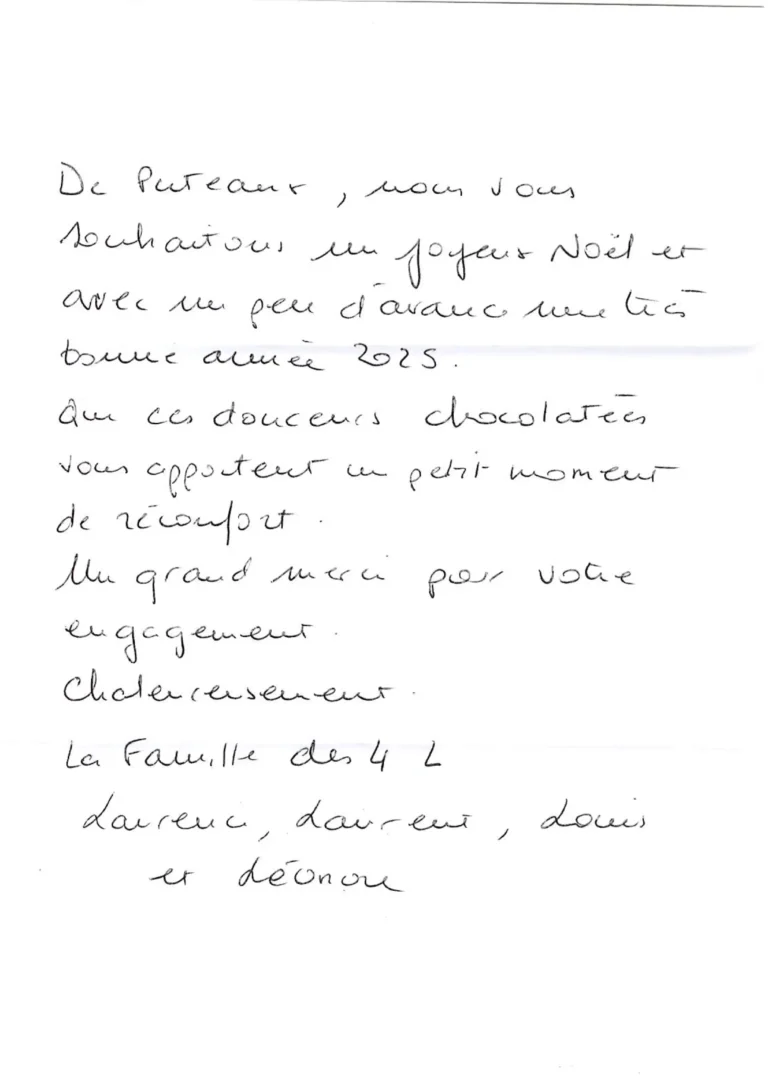 De Puteaux, nous vous
souhaitons un joyeux Noël et
avec un peu d'avance une très
bonne année 2025.
Que ces douceurs chocolatées
vous apportent un petit moment
de réconfort.
Un grand merci pour votre
engagement.
Chaleureusement.
La Famille des 4 L
Laurence, Laurent, Louis
et Léonore